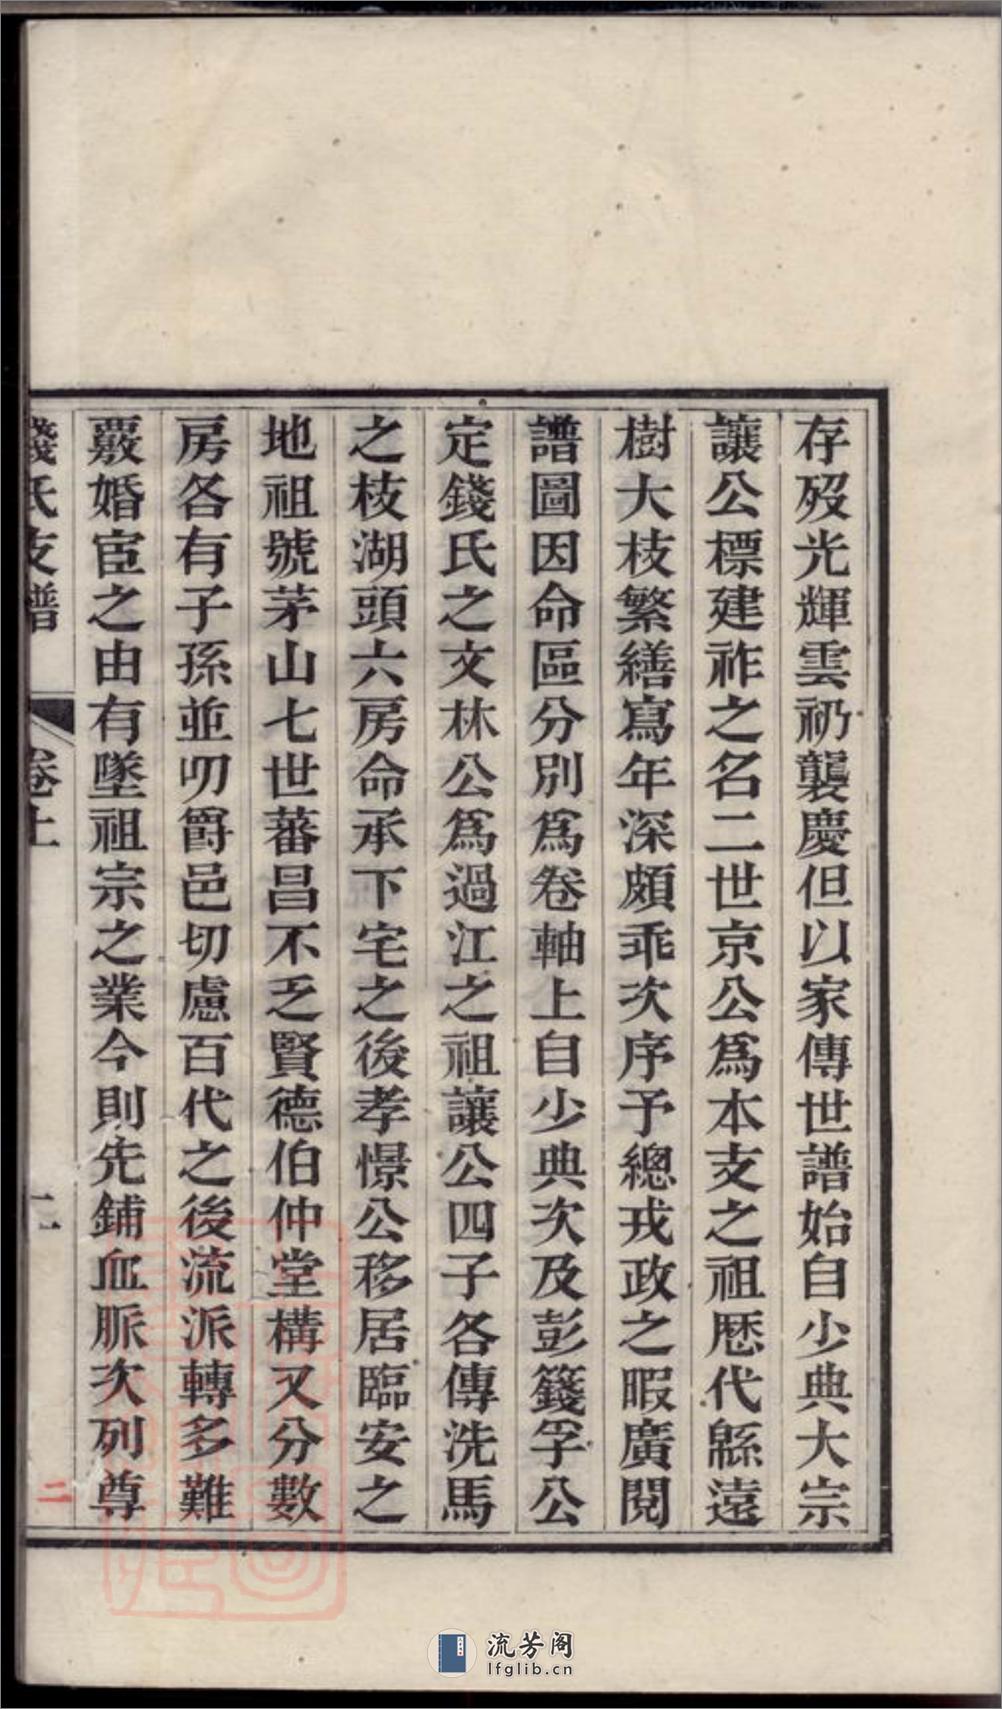 存歿光輝雲礽襲慶但以家傳世譜始自少典大宗
讓公標建祚之名二世京公爲本支之祖歷代緜遠
樹大枝繁繕寫年深頗乖次序予總戎政之暇廣閱
譜圖因命區分別爲卷軸上自少典次及彭籛孚公
定錢氏之文林公爲過江之祖讓公四子各傳洗馬
之枝湖頭六房命承下宅之後孝憬公移居臨安之
地祖號茅山七世蕃昌不乏賢德伯仲堂構又分數
房各有子孫並叨爵邑切慮百代之後流派轉多難
覈婚宦之由有墜祖宗之業今則先鋪血脈次列尊
錢氏支譜 卷上 二
二
流芳阁
lfglib.cn